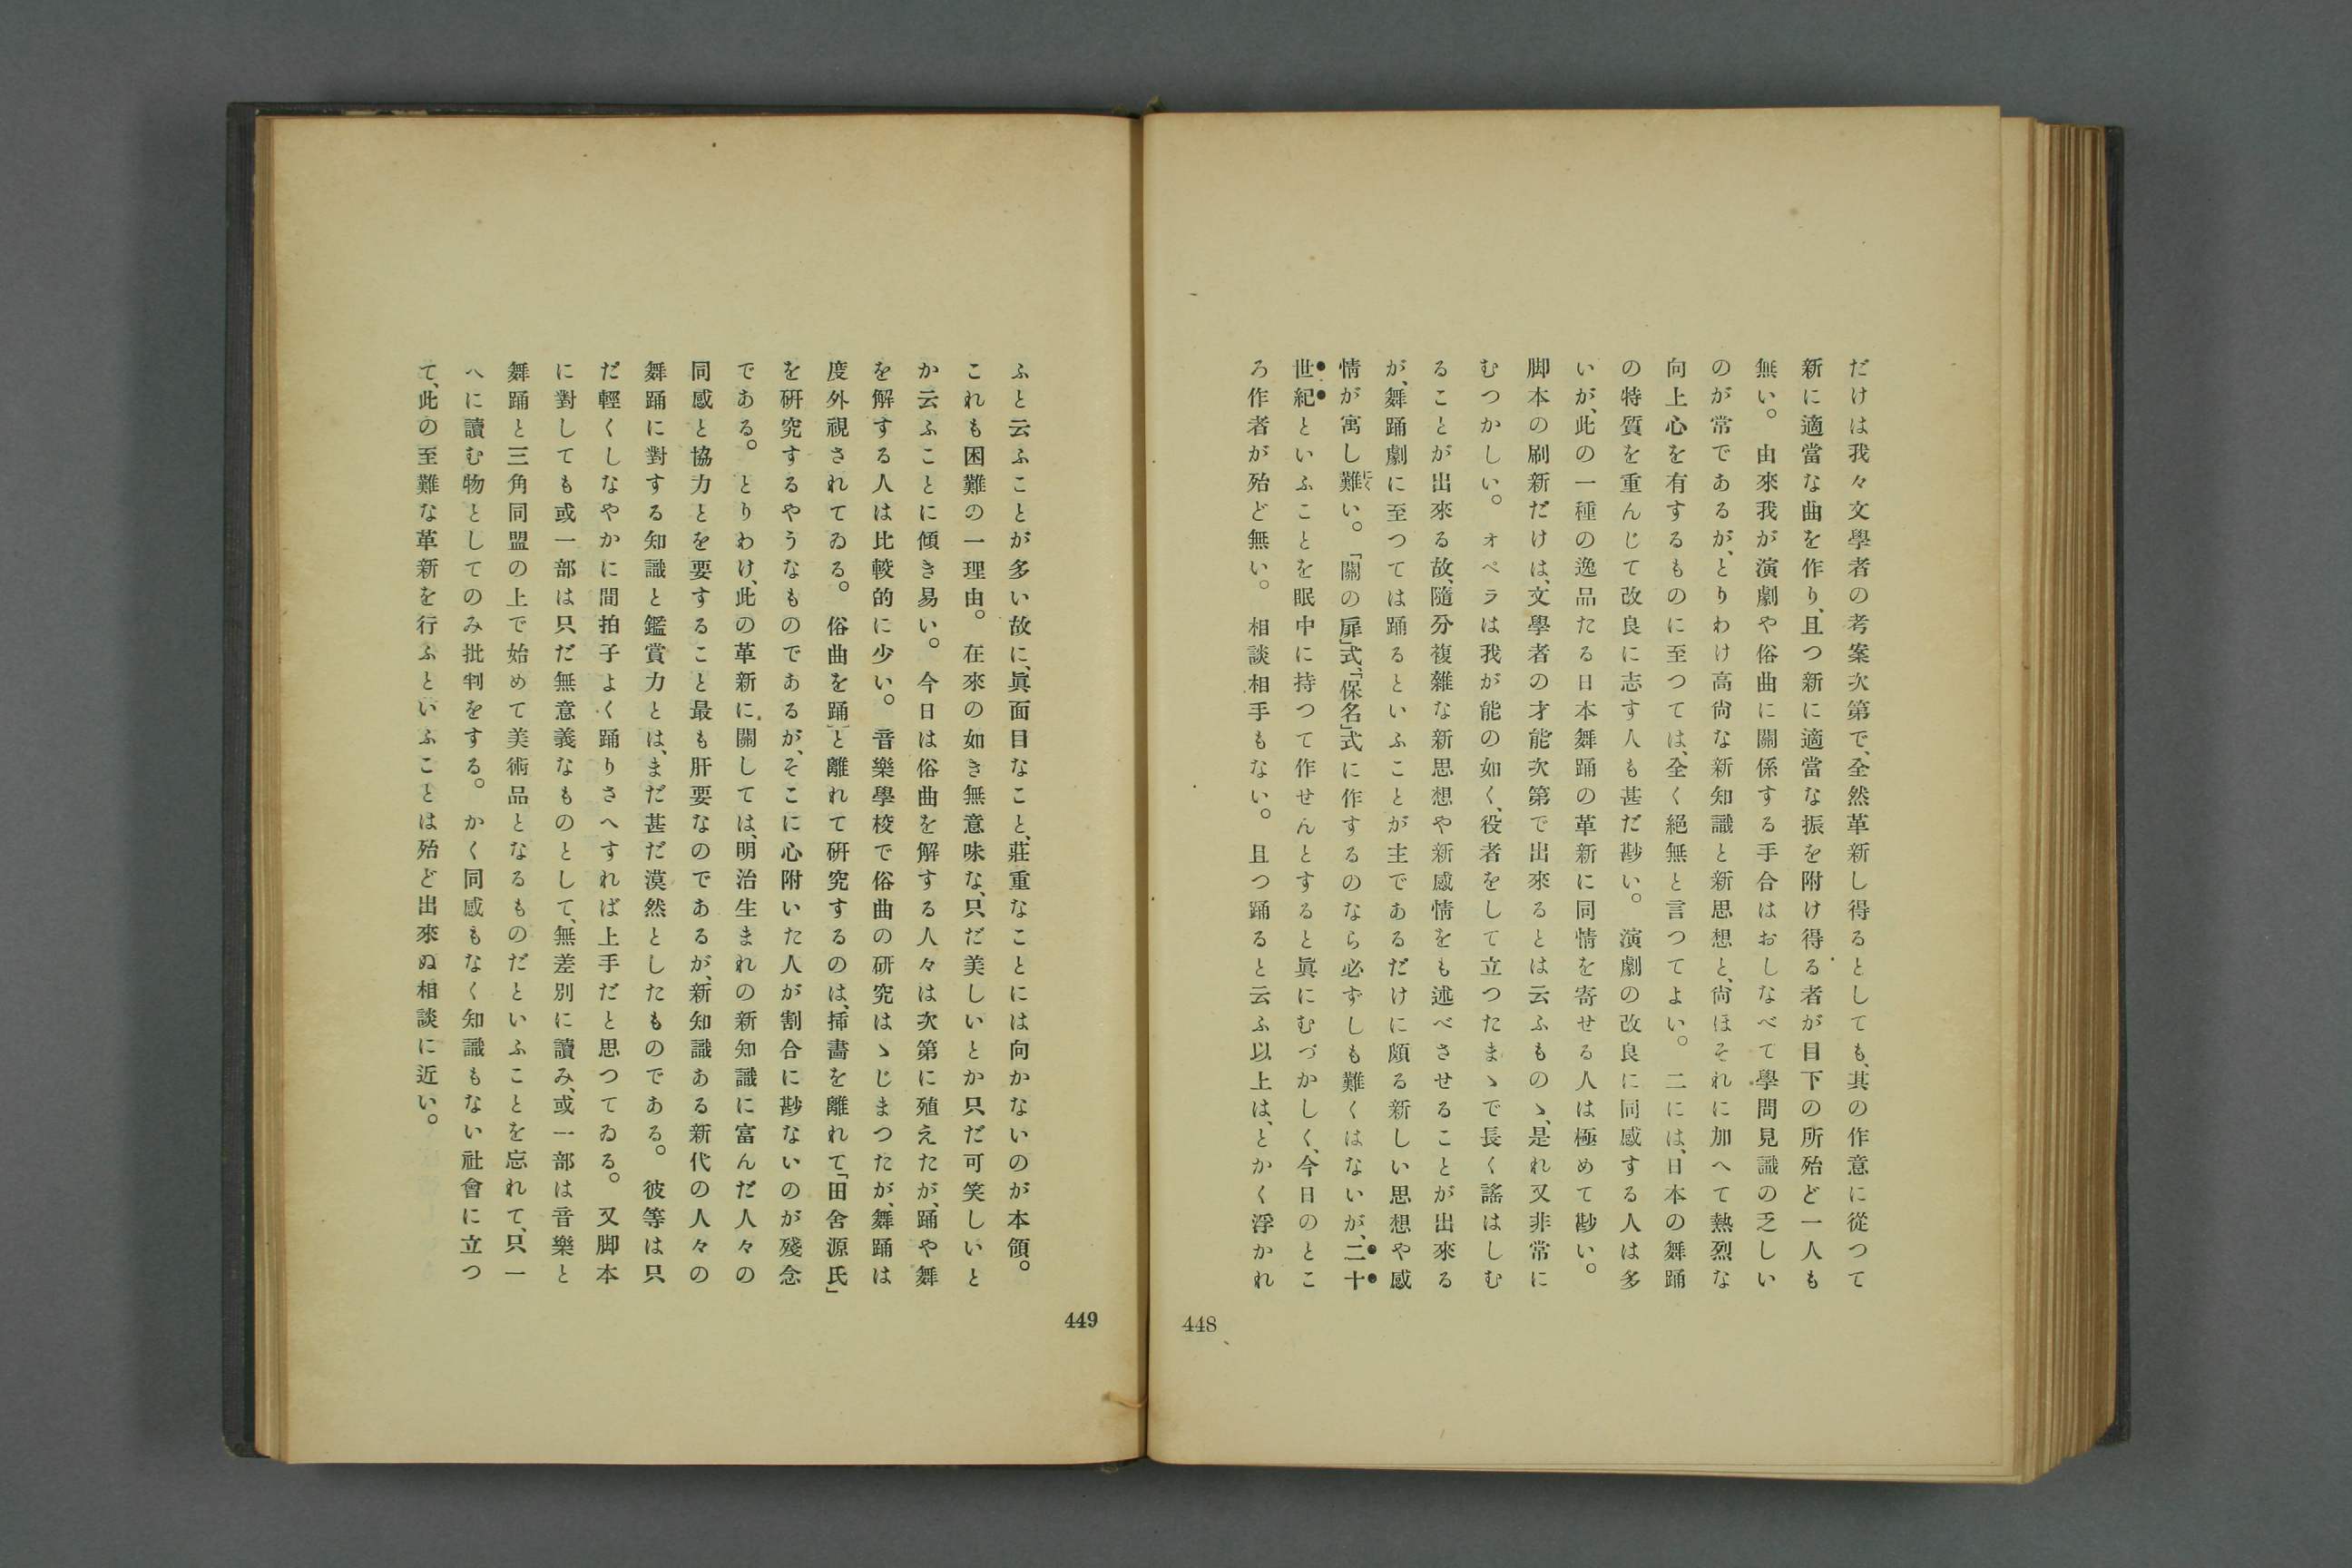 だけは我々文學者の考案次第で、全然革新し得るとしても、其の作意に從つて
新に適當な曲を作り、且つ新に適當な振を附け得る者が目下の所殆ど一人も
無い。由來我が演劇や俗曲に關係する手合はおしなべて學問見識の乏しい
のが常であるが、とりわけ高尙な新知識と新思想と、尙ほそれに加へて熱烈な
向上心を有するものに至つては、全く絕無と言つてよい。二には、日本の舞踊
の特質を重んじて改良に志す人も甚だ尠い。演劇の改良に同感する人は多
いが、此の一種の逸品たる日本舞踊の革新に同情を寄せる人は極めて尠い。
脚本の刷新だけは、文學者の才能次第で出來るとは云ふものゝ、是れ又非常に
むつかしい。オペラは我が能の如く、役者をして立つたまゝで長く謠はしむ
ることが出來る故、隨分複雜な新思想や新感情をも述べさせることが出來る
が、舞踊劇に至つては踊るといふことが主であるだけに頗る新しい思想や感
情が寓し難い。「關の扉」式、「保名」式に作するのなら必ずしも難くはないが、二十
世紀といふことを眼中に持つて作せんとすると眞にむづかしく、今日のとこ
ろ作者が殆ど無い。相談相手もない。且つ踊ると云ふ以上は、とかく浮かれ
448
ふと云ふことが多い故に、眞面目なこと、莊重なことには向かないのが本領。
これも困難の一理由。在來の如き無意味な、只だ美しいとか只だ可笑しいと
か云ふことに傾き易い。今日は俗曲を解する人々は次第に殖えたが、踊や舞
を解する人は比較的に少い。音樂學校で俗曲の研究はゝじまつたが、舞踊は
度外視されてゐる。俗曲を踊と離れて硏究するのは、揷畫を離れて「田舍源氏」
を硏究するやうなものであるが、そこに心附いた人が割合に尠ないのが殘念
である。とりわけ、此の革新に關しては、明治生まれの新知識に富んだ人々の
同感と協力とを要すること最も肝要なのであるが、新知識ある新代の人々の
舞踊に對する知識と鑑賞力とは、まだ甚だ漠然としたものである。彼等は只
だ輕くしなやかに間拍子よく踊りさへすれば上手だと思つてゐる。又脚本
に對しても或一部は只だ無意義なものとして、無差別に讀み、或一部は音樂と
舞踊と三角同盟の上で始めて美術品となるものだといふことを忘れて、只一
へに讀む物としてのみ批判をする。かく同感もなく知識もない社會に立つ
て、此の至難な革新を行ふといふことは殆ど出來ぬ相談に近い。
449